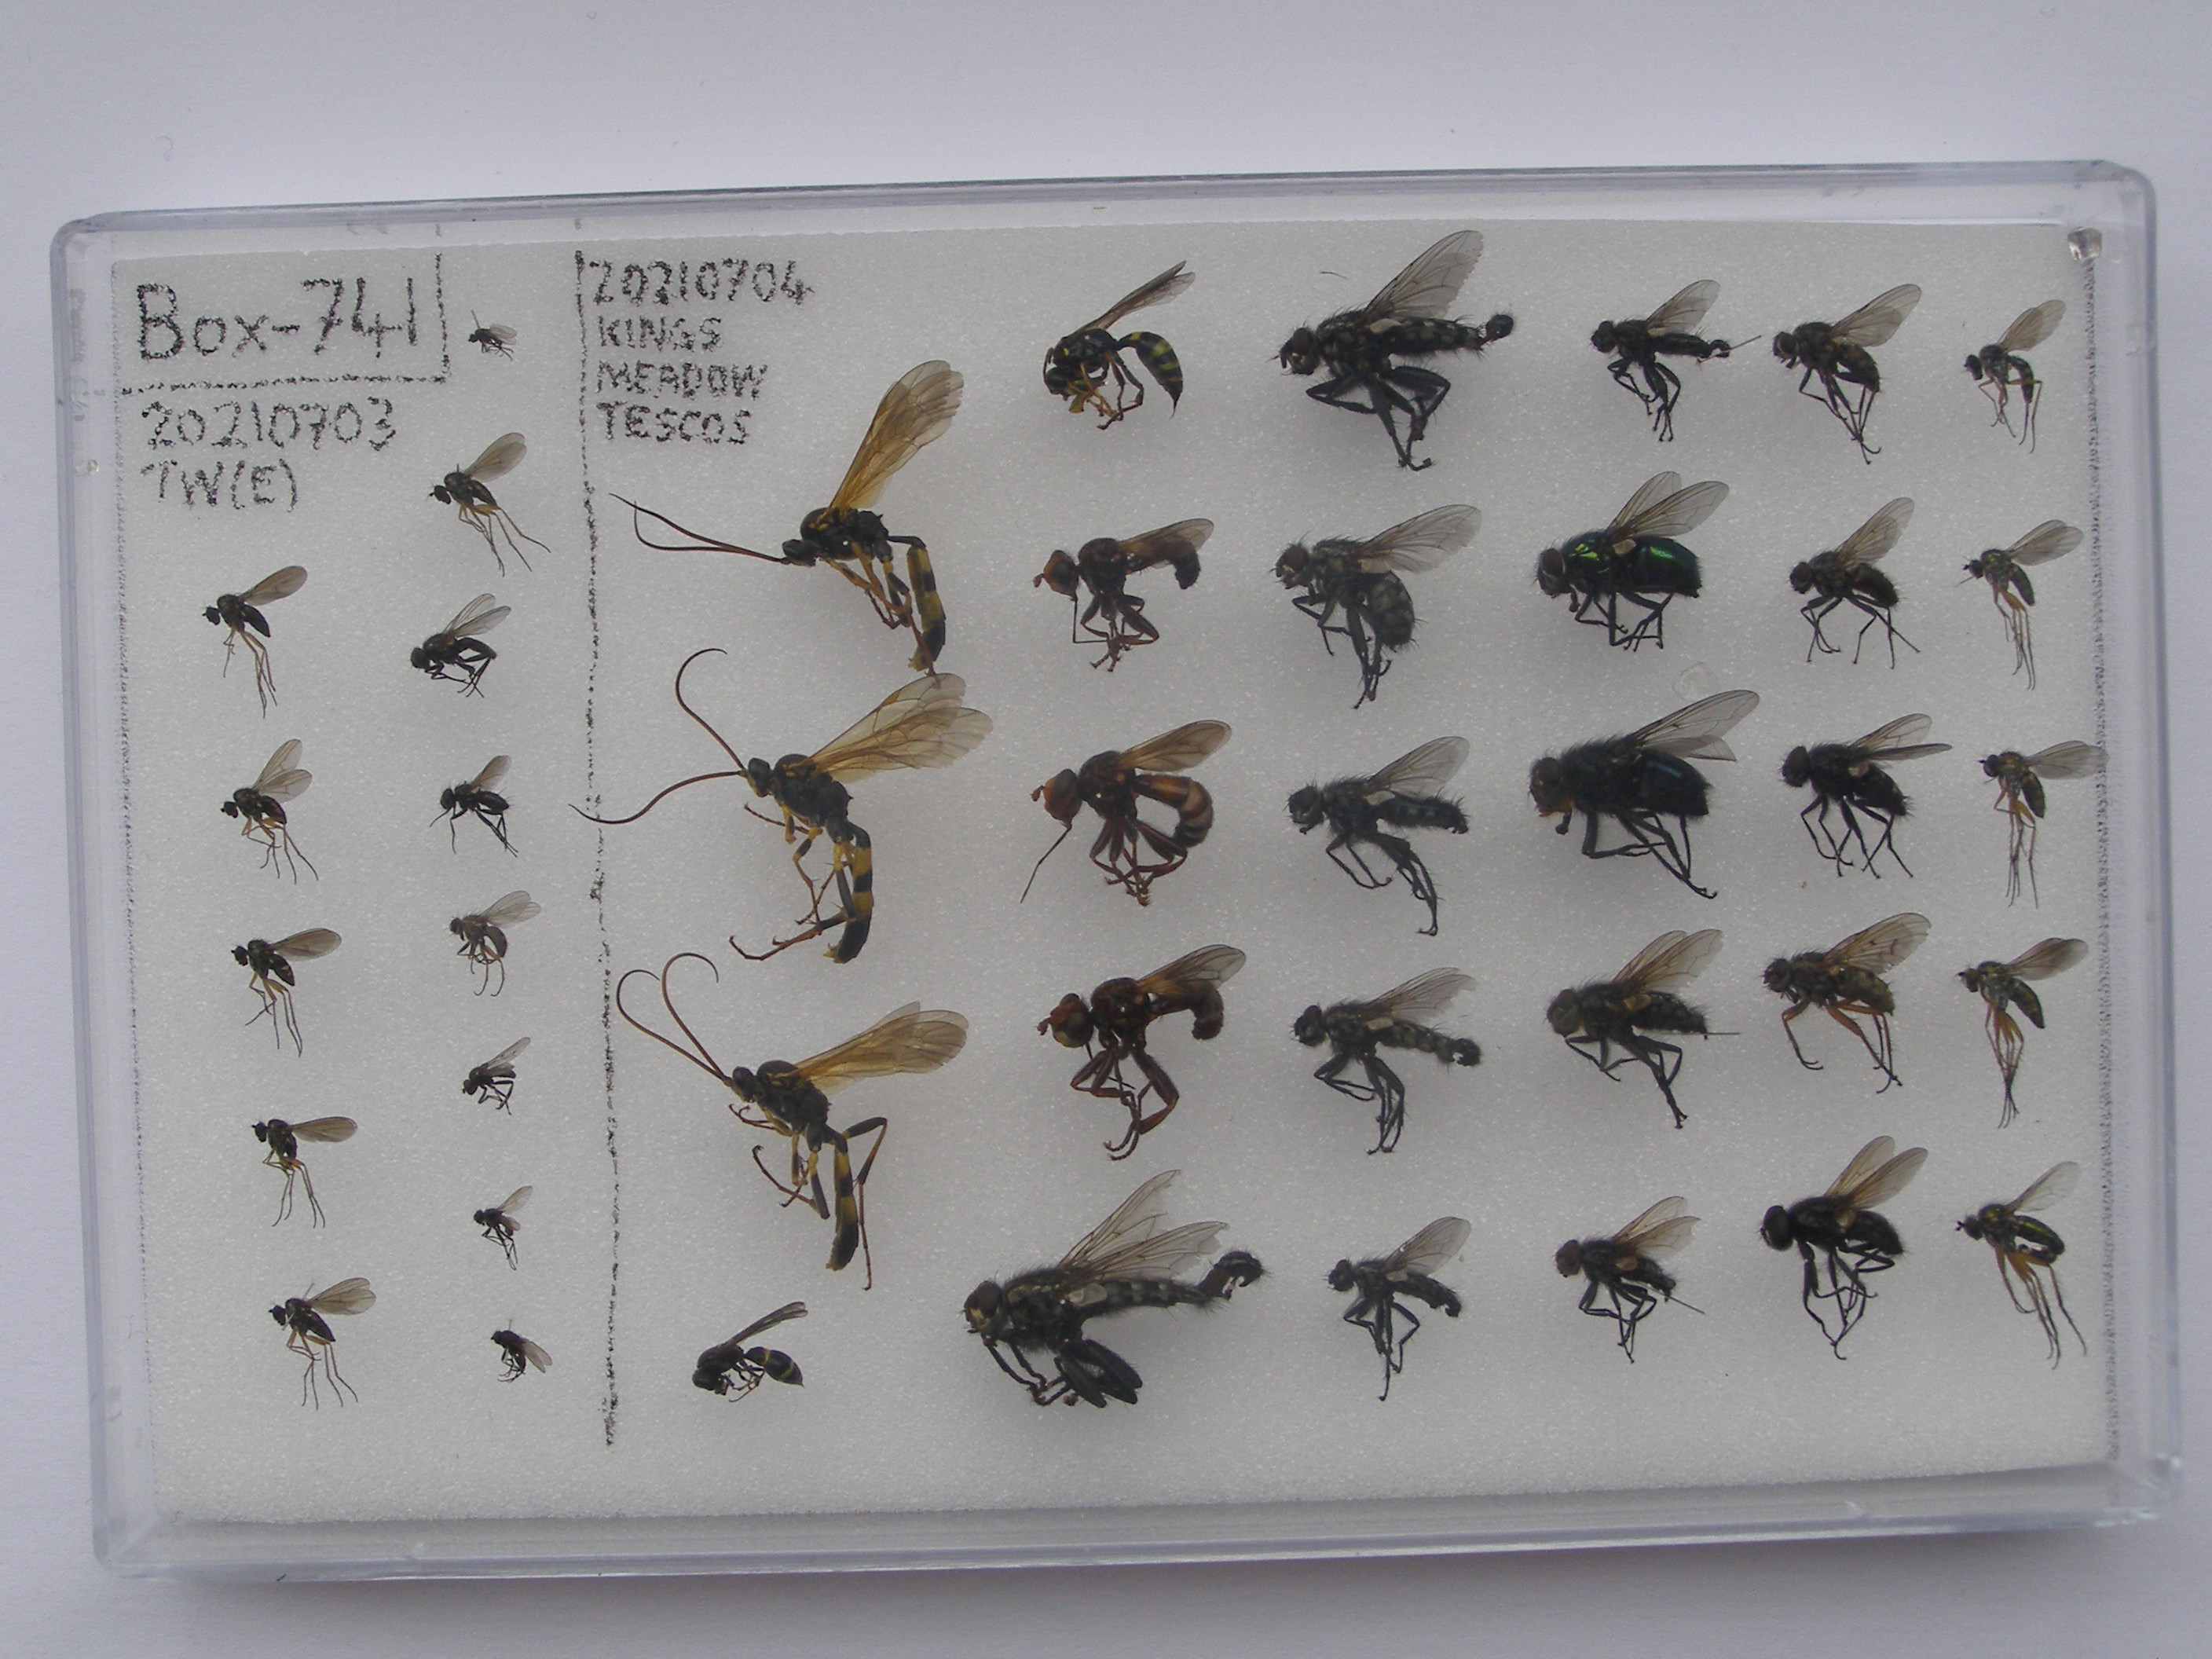 Box-741
20210703
TW(E)
20210704
KINGS
MEADOW
TESCOS